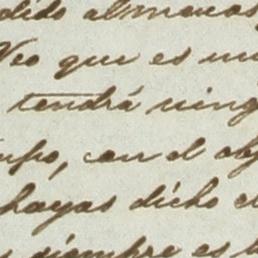 dido almanas
Veo que es
tendrá ning
po, con el obj
hayas dicho el
siempre es